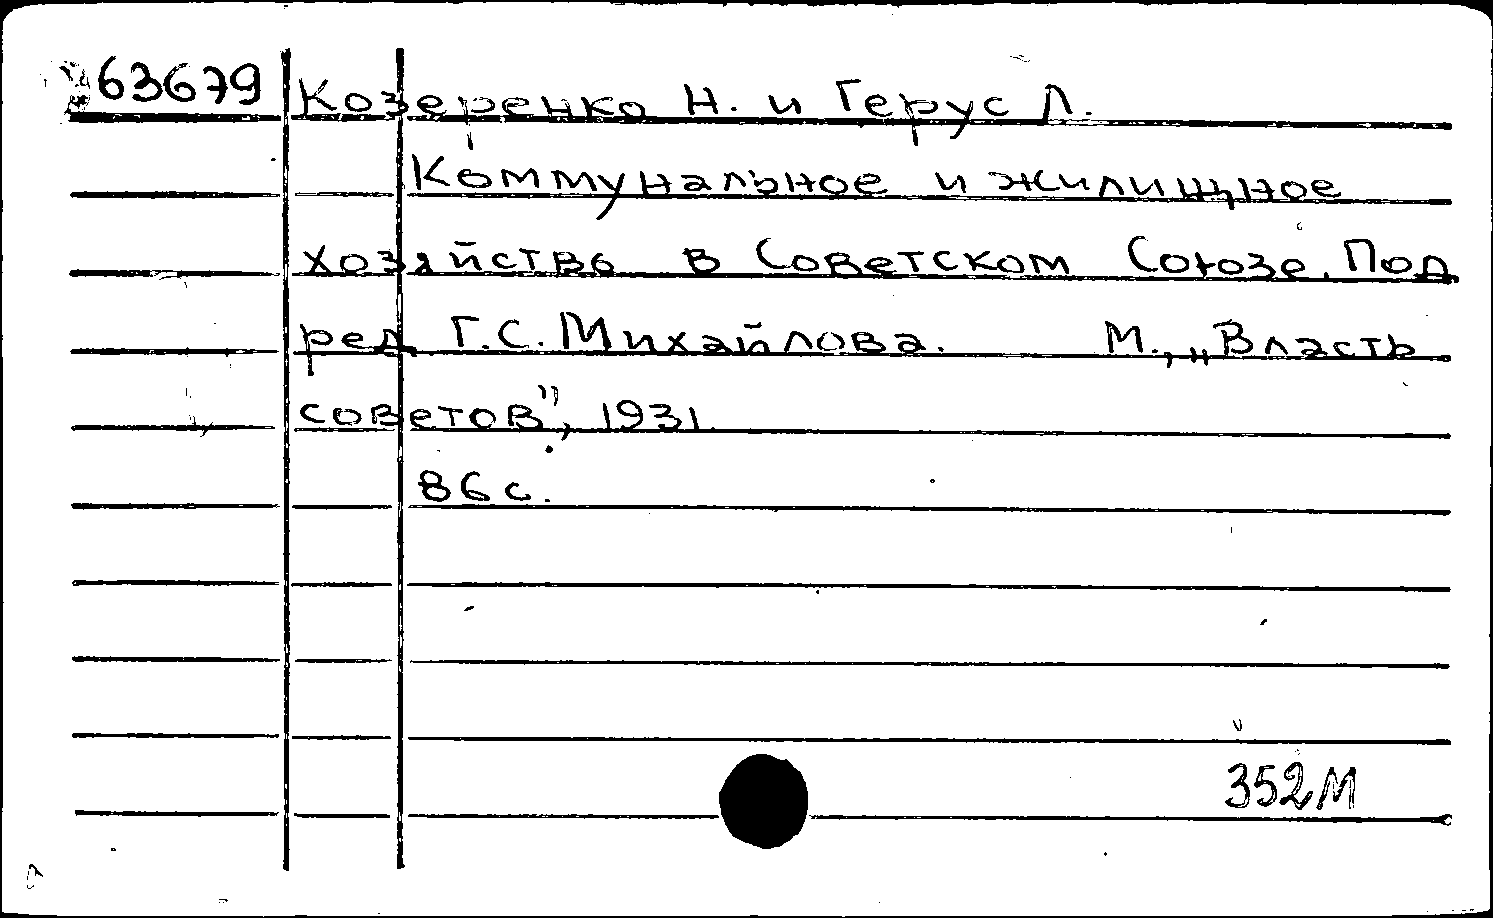 63679 Козеренко Н. и Герус Л.
Коммунальное и жилищное
хозяйство в Советском Союзе. Под
ред Г.С. Михайлова. М., „Власть
советов", 1931.
86 с.
352М